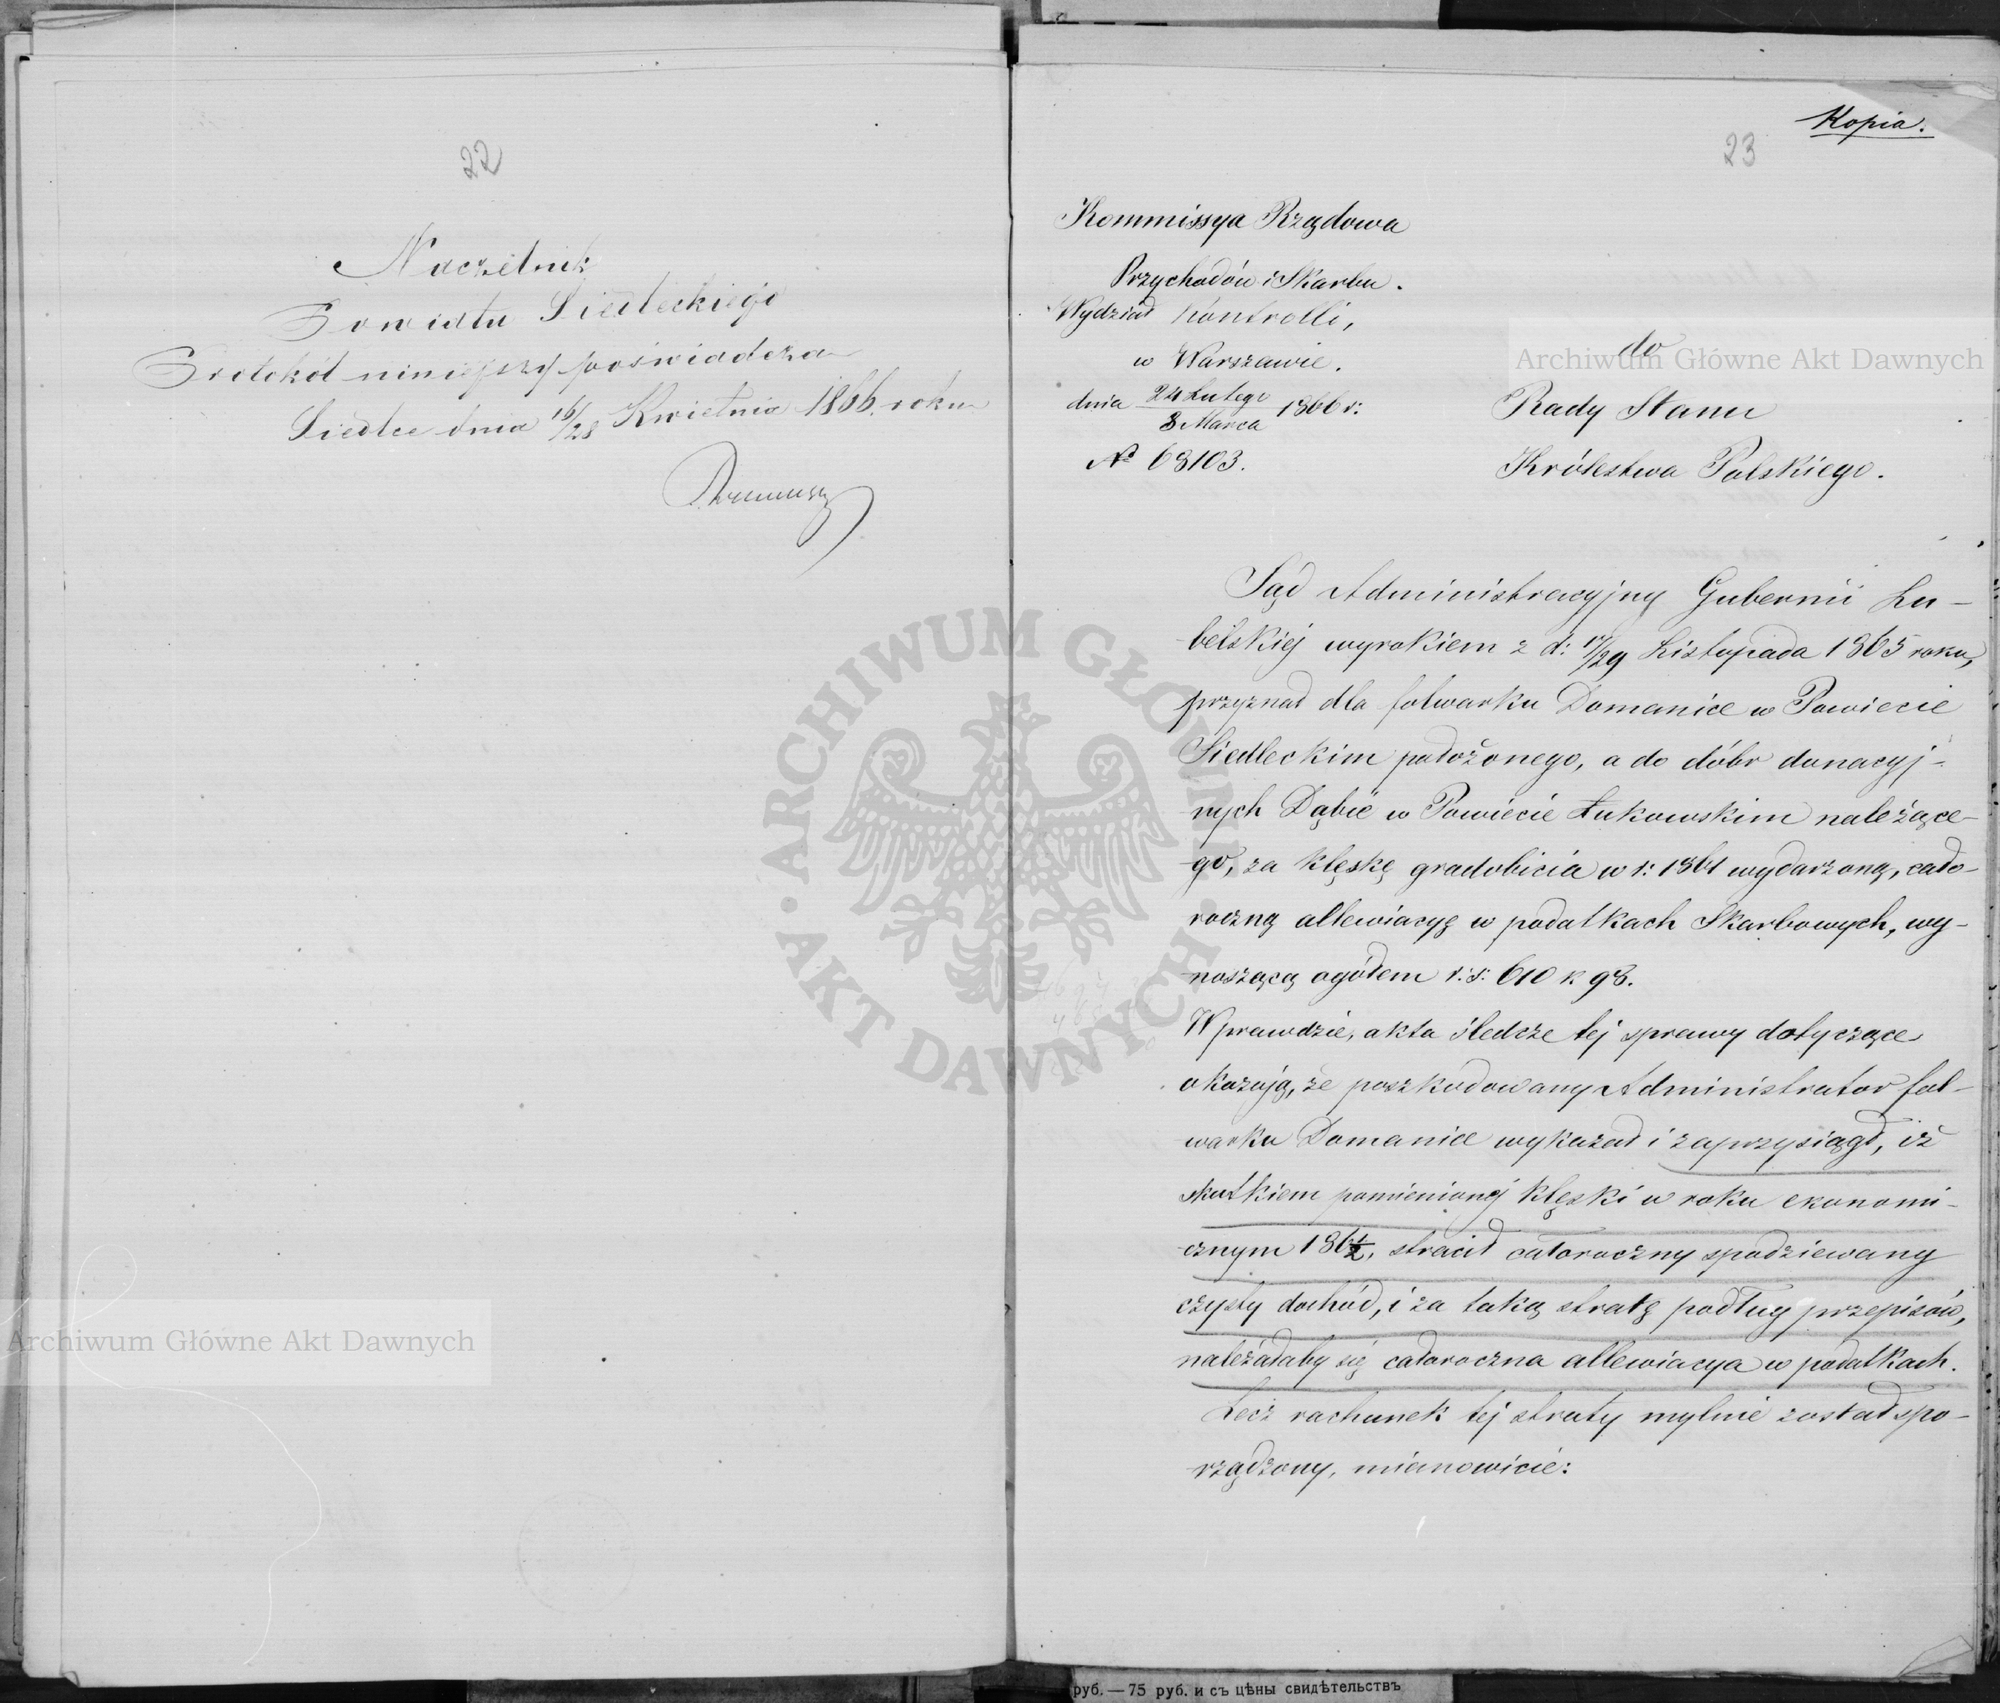 22
Naczelnik
Powiatu Siedleckiego
Protokół niniejszy poświadcza
Siedlce dnia 16/28 Kwietnia 1866 roku
Kopia.
23
Kommissya Rządowa
Przychodów i Skarbu.
Wydział Kontrolli,
w Warszawie.
dnia 24 Lutego / 8 Marca 1866 r:
№ 68103.
do
Rady Stanu
Królestwa Polskiego.
Sąd Administracyjny Gubernii Lu-
belskiej wyrokiem z d: 17/29 Listopada 1865 roku,
przyznał dla folwarku Domanice w Powiecie
Siedleckim położonego, a do dóbr donacyj-
nych Dąbie w Powiecie Łukowskim należące-
go, za klęskę gradobicia w r: 1861 wydarzoną, cało-
roczną allewiacyę w podatkach Skarbowych, wy-
noszącą ogółem r: s: 610 k 98.
Wprawdzie, akta śledcze tej sprawy dotyczące
okazują, że poszkodowany Administrator fol-
warku Domanice wykazał i zaprzysiągł, iż
skutkiem pomienionej klęski w roku ekonomi-
cznym 1861/2, stracił całoroczny spodziewany
czysty dochód, i za taką stratę podług przepisów,
należałaby się całoroczna allewiacya w podatkach.
Lecz rachunek tej straty mylnie został spo-
rządzony, mianowicie:
Archiwum Główne Akt Dawnych
Archiwum Główne Akt Dawnych
ARCHIWUM GŁÓWNE · AKT DAWNYCH ·
руб.—75 руб. и съ цѣны свидѣтельствъ